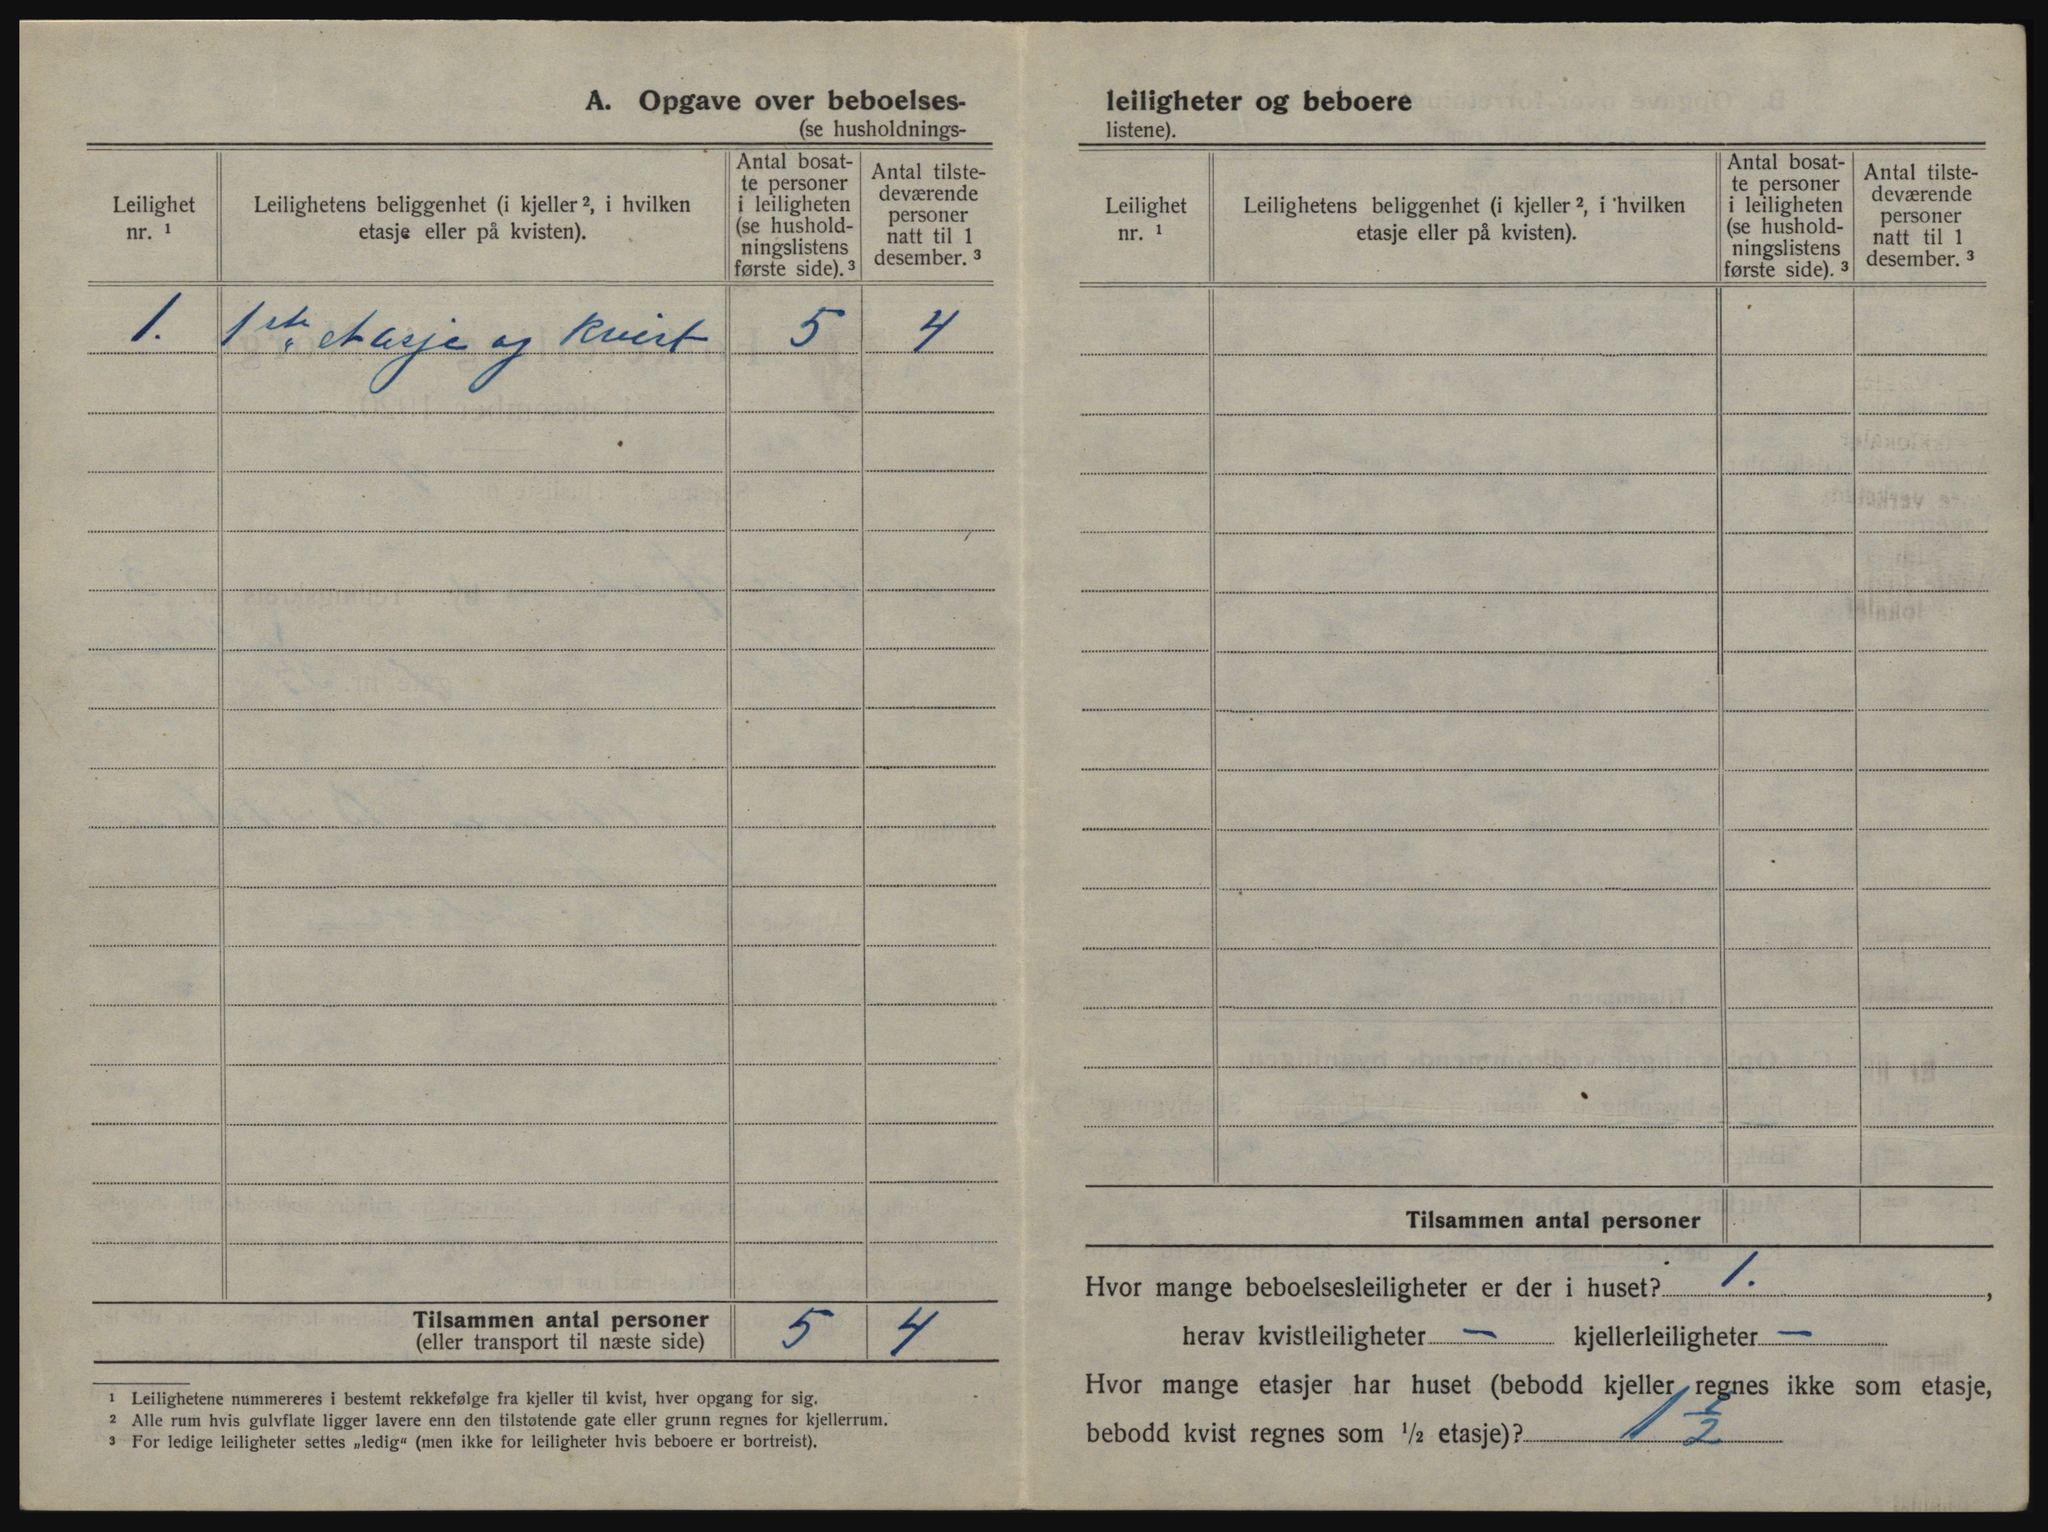 A. Opgave over beboelses-
(se husholdnings-
Leilighet
nr. ¹
Leilighetens beliggenhet (i kjeller ², i hvilken
etasje eller på kvisten).
Antal bosat-
te personer
i leiligheten
(se hushold-
ningslistens
første side). ³
Antal tilste-
deværende
personer
natt til 1
desember. ³
1. 1ste etasje og kvist 5 4
Tilsammen antal personer 5 4
(eller transport til næste side)
¹ Leilighetene nummereres i bestemt rekkefølge fra kjeller til kvist, hver opgang for sig.
² Alle rum hvis gulvflate ligger lavere enn den tilstøtende gate eller grunn regnes for kjellerrum.
³ For ledige leiligheter settes „ledig“ (men ikke for leiligheter hvis beboere er bortreist).
leiligheter og beboere
listene).
Leilighet
nr. ¹
Leilighetens beliggenhet (i kjeller ², i hvilken
etasje eller på kvisten).
Antal bosat-
te personer
i leiligheten
(se hushold-
ningslistens
første side). ³
Antal tilste-
deværende
personer
natt til 1
desember. ³
Tilsammen antal personer
Hvor mange beboelsesleiligheter er der i huset? 1. ,
herav kvistleiligheter — kjellerleiligheter —
Hvor mange etasjer har huset (bebodd kjeller regnes ikke som etasje,
bebodd kvist regnes som ½ etasje)? 1 ½